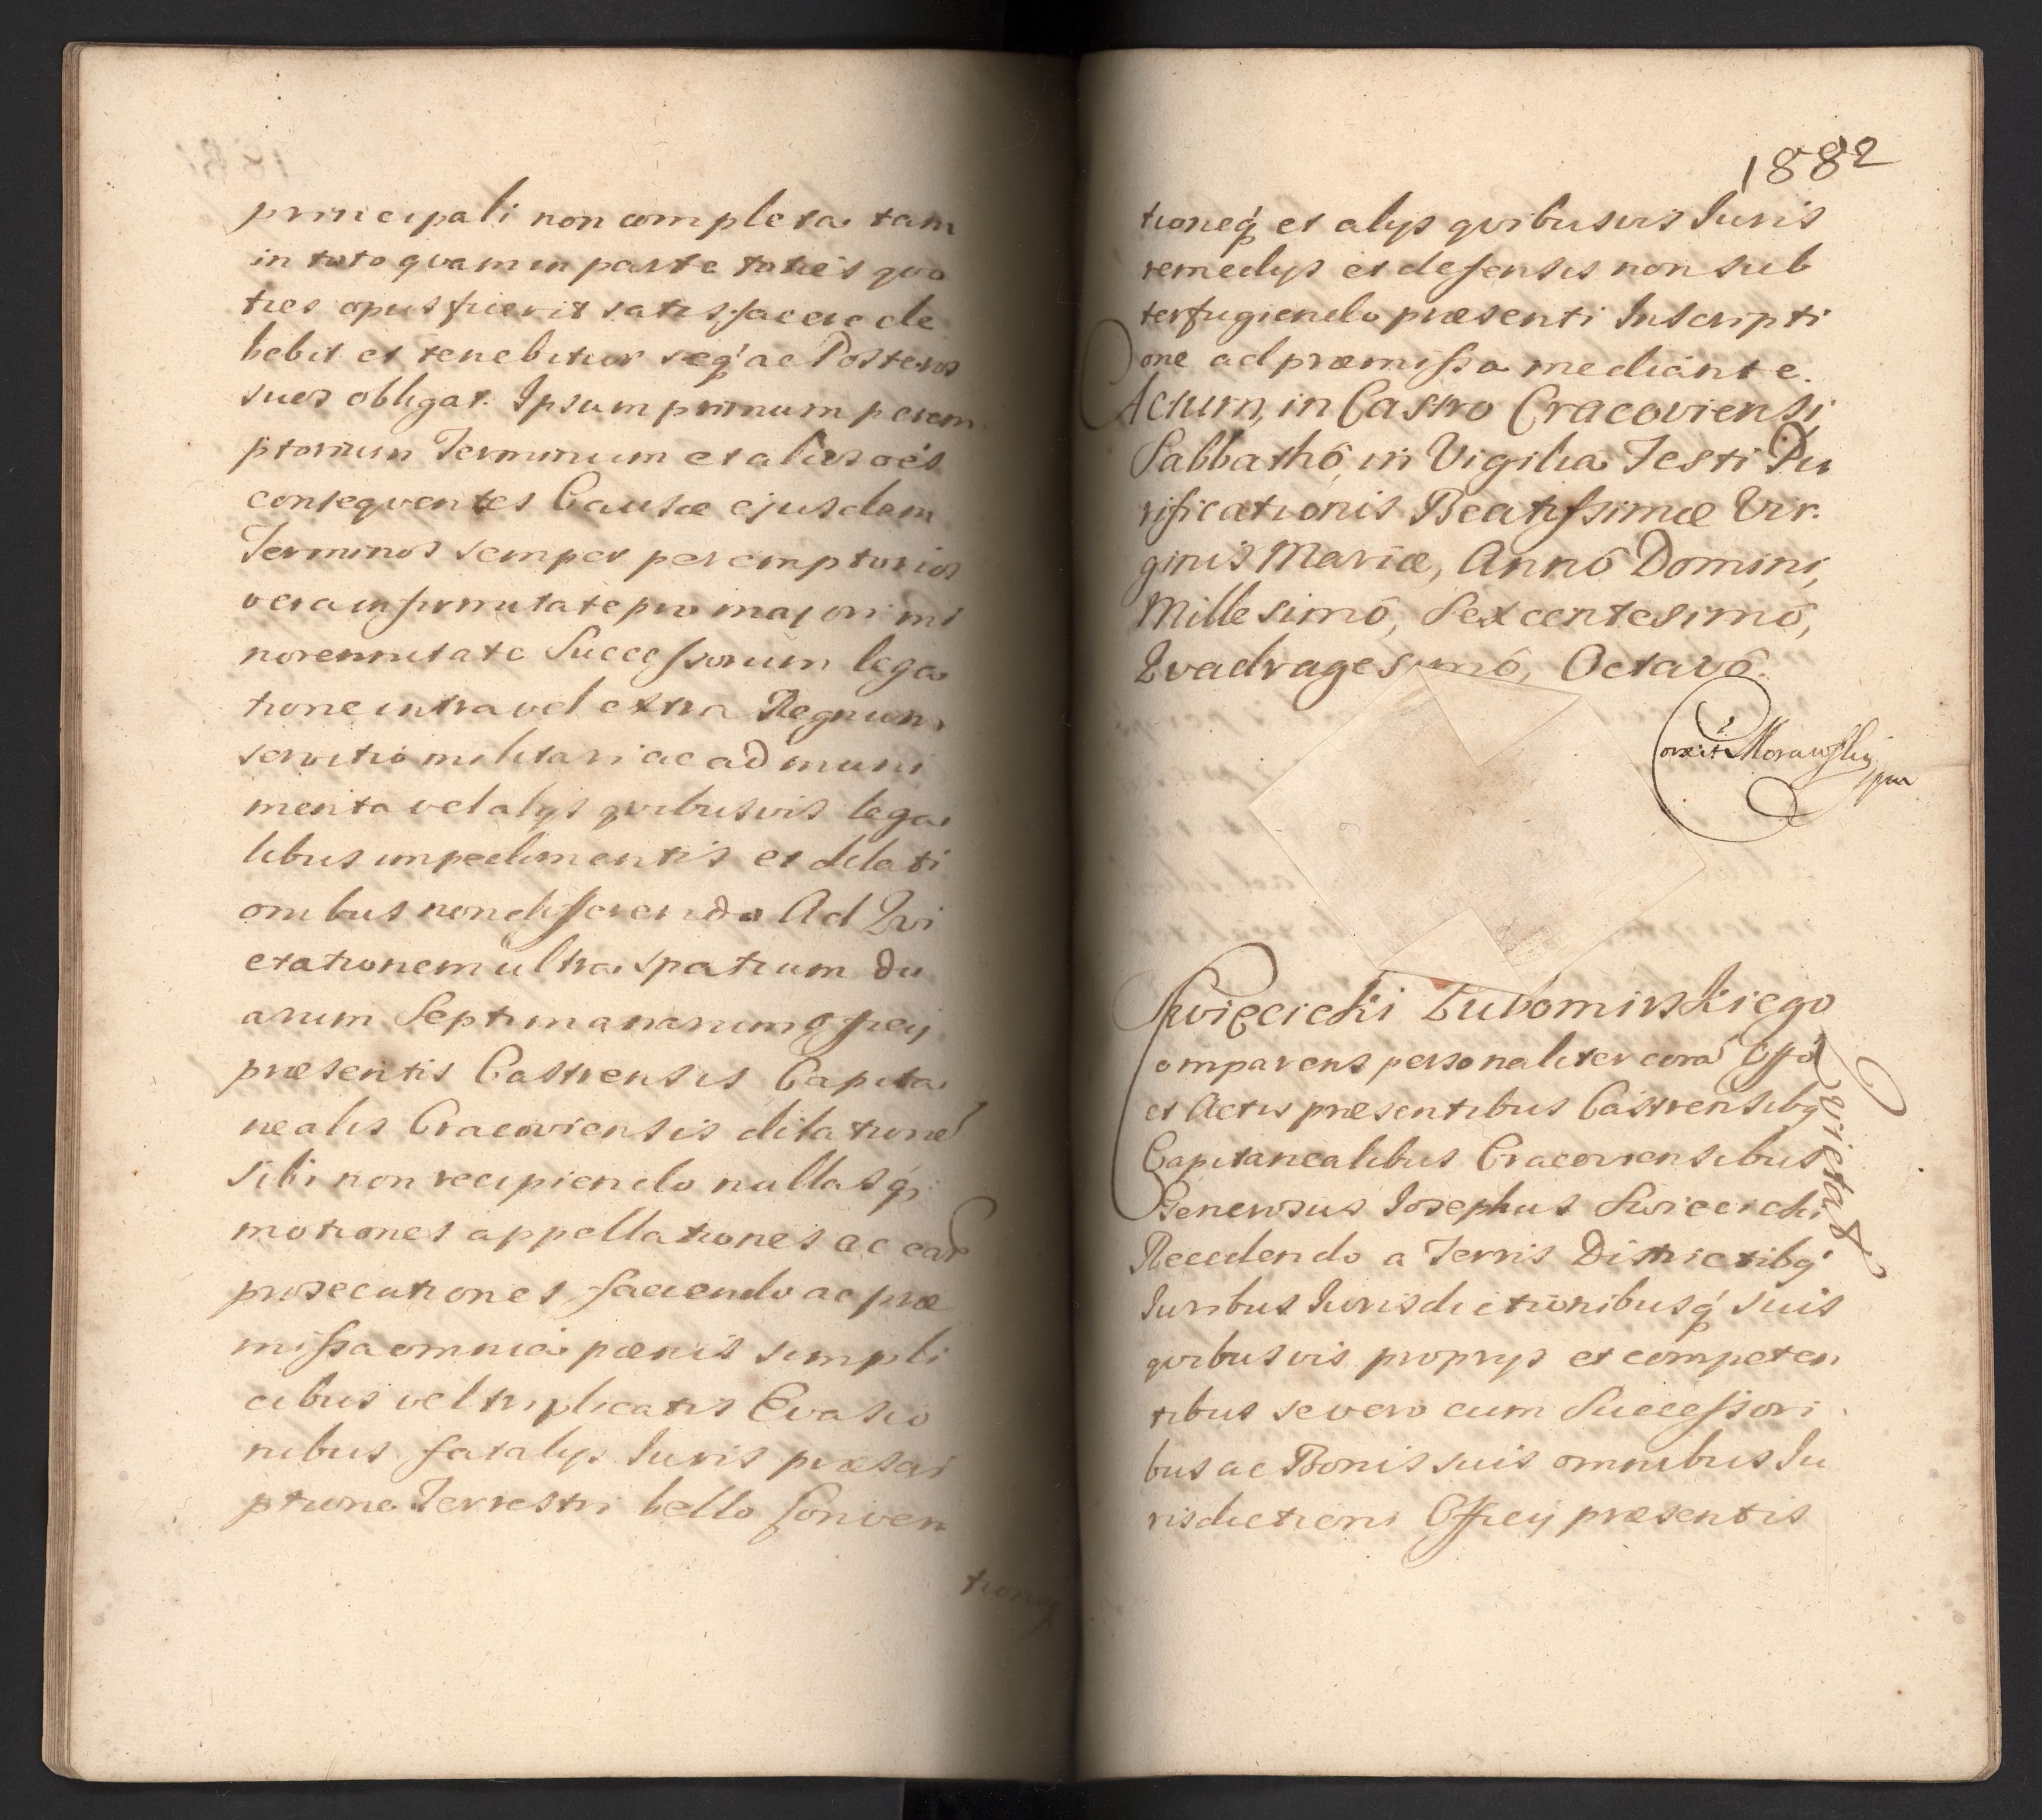 principali non completa tam
in toto quam in parte toties quo
ties opus fuerit satisfacere de
bebit et tenebitur seq́ ac Posteros
suos obligat. Ipsum primum perem
ptorium Terminum et alios oes
consequentes Causæ ejusdem
Terminos semper peremptorios
vera infirmitate pro majori mi
norennitate Successorum lega
tione intra vel extra Regnum
servitio militari ac ad muni
menta vel alys quibusvis lega
libus impedimentis et dilati
onibus non differendo Ad Qui
etationem ultra spatium du
arum Septimanarum Offcij
præsentis Castrensis Capita
nealis Cracoviensis dilatione
sibi non recipiendo nullasq́
motiones appellationes ac ear
prosecutiones faciendo ac præ
missa omnia pœnis simpli
cibus vel triplicatis Evasio
nibus fatalys Iuris præscri
ptione Terrestri bello Conven
tioneq́
1882
tioneq́ et alys quibusvis Iuris
remedys et defensis non sub
terfugiendo præsenti Inscripti
one ad præmissa mediante.
Actum, in Castro Cracoviensi,
Sabbathô in Vigilia Festi Pu
rificationis Beatissimæ Vir.
ginis Mariæ, Annô Domini,
Millesimô, Sexcentesimô,
Quadragesimô, Octavô.
Correxit Morawsky
mpr
Swięcicki Lubomirskiego
Quietat
Comparens personaliter corã Offõ
et Actis præsentibus Castrensibq́
Capitanealibus Cracoviensibus
Generosus Iosephus Swiecicki
Recedendo a Terris Districtibq́
Iuribus Iurisdictionibusq́ suis
quibusvis proprys et competen
tibus se vero cum Successori
bus ac Bonis suis omnibus Iu
risdictioni Officij præsentis